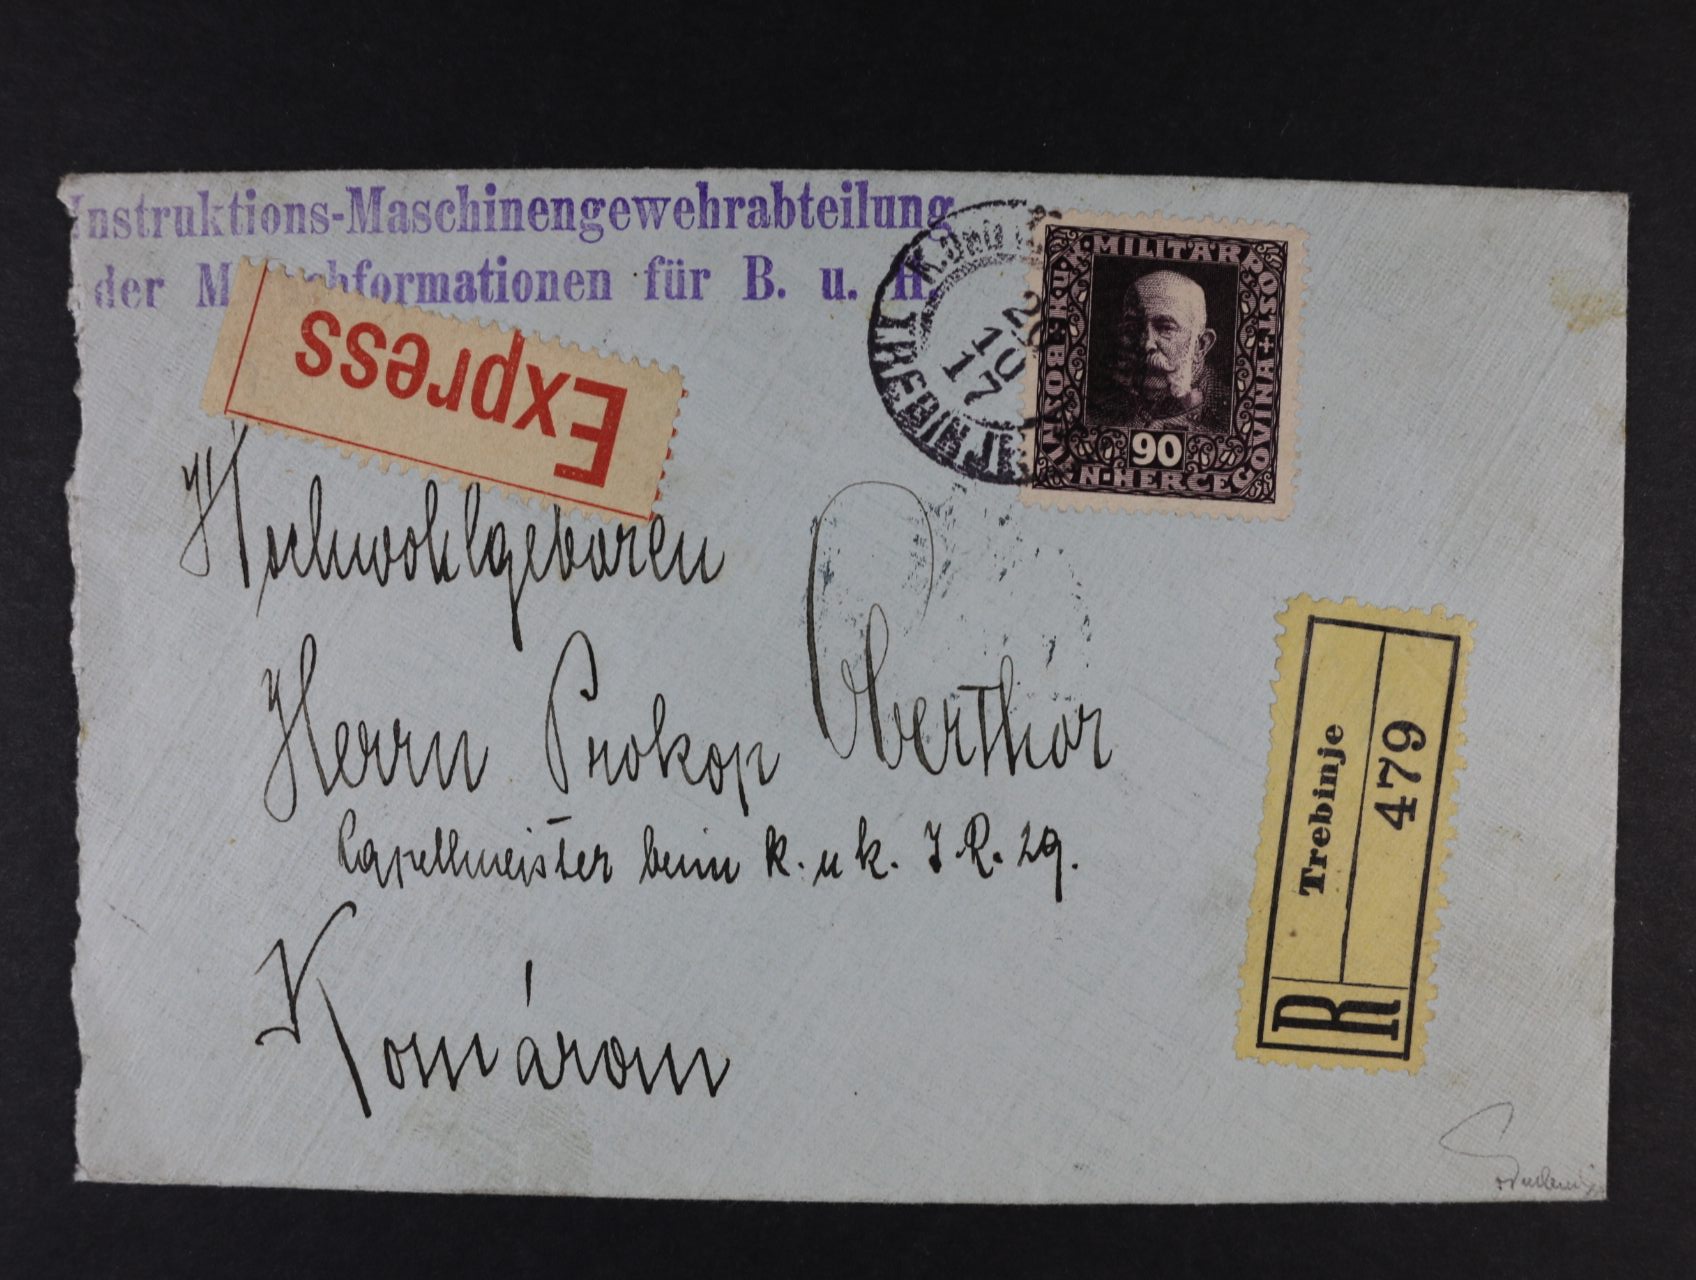 Instruktions-Maschinengewehrabteilung
der Marschformationen für B. u. H.
Express
TREBINJE
10
17
K.U.K. MILITÄRPOST
BOSNIEN-HERCEGOVINA
90
Hochwohlgeboren
Herrn Prokop Oberthor
Capellmeister beim k. u k. I. R. 29.
Komárom
R
Trebinje
479